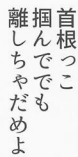 首根っこ
掴んででも
離しちゃだめよ